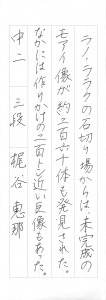 ラノ・ララクの石切り場からは、未完成の
モアイ像が約二百六十体も発見された。
なかには作りかけの二百トン近い巨像もあった。
中二　三段　梶谷　恵那